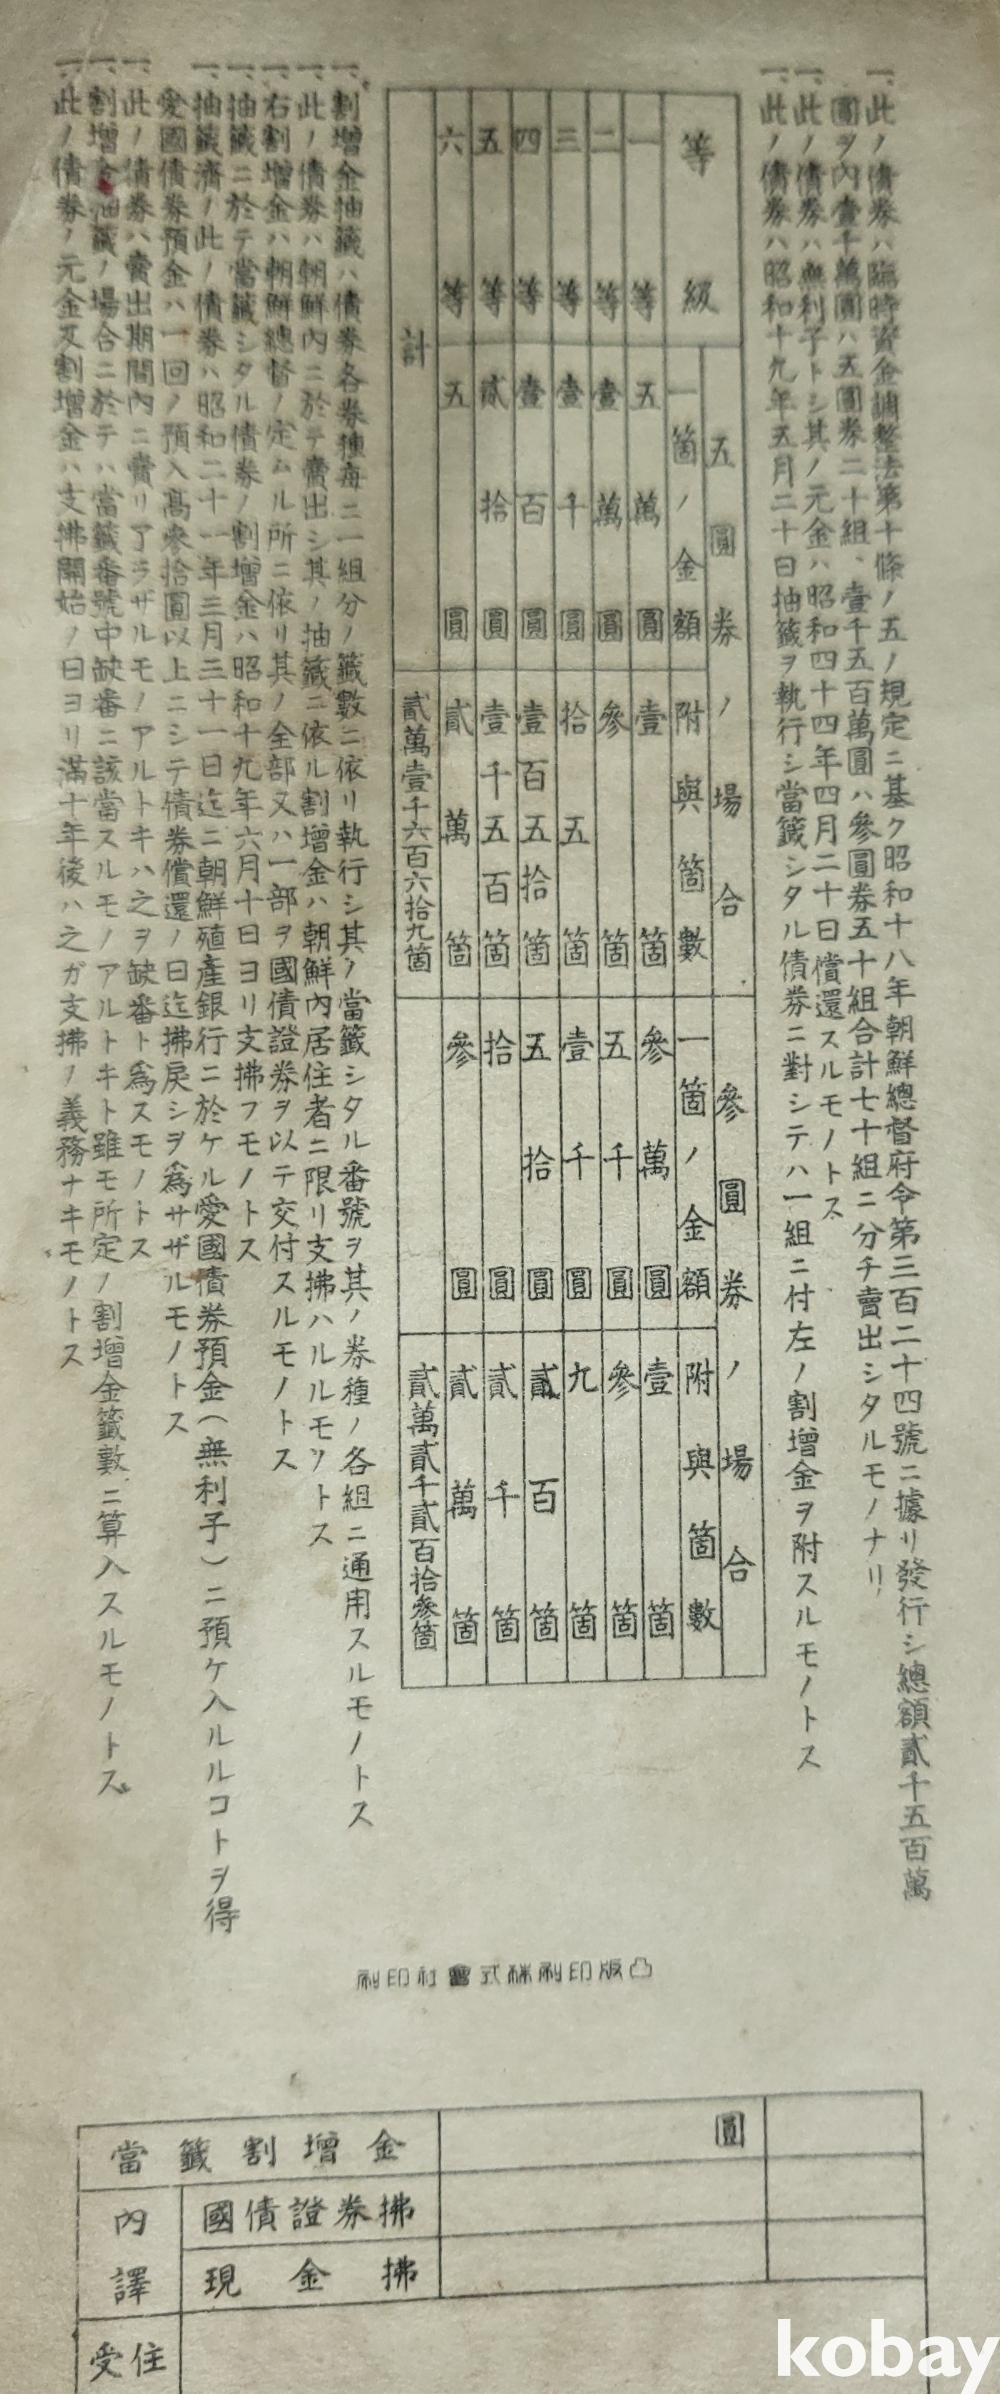 一、此ノ債券ハ臨時資金調整法第十條ノ五ノ規定ニ基ク昭和十八年朝鮮總督府令第三百二十四號ニ據リ發行シ總額貳千五百萬
圓ヲ內壹千萬圓ハ五圓券二十組、壹千五百萬圓ハ參圓券五十組合計七十組ニ分チ賣出シタルモノナリ
一、此ノ債券ハ無利子トシ其ノ元金ハ昭和四十四年四月二十日償還スルモノトス
一、此ノ債券ハ昭和十九年五月二十日抽籤ヲ執行シ當籤シタル債券ニ對シテハ一組ニ付左ノ割增金ヲ附スルモノトス
等級 五圓券ノ場合 參圓券ノ場合
一箇ノ金額 附與箇數 一箇ノ金額 附與箇數
一等 五萬圓 壹箇 參萬圓 壹箇
二等 壹萬圓 參箇 五千圓 參箇
三等 壹千圓 拾五箇 壹千圓 九箇
四等 壹百圓 壹百五拾箇 五拾圓 貳百箇
五等 貳拾圓 壹千五百箇 拾圓 貳千箇
六等 五圓 貳萬箇 參圓 貳萬箇
計 貳萬壹千六百六拾九箇 貳萬貳千貳百拾參箇
一、割增金抽籤ハ債券各券種每ニ一組分ノ籤數ニ依リ執行シ其ノ當籤シタル番號ヲ其ノ券種ノ各組ニ通用スルモノトス
一、此ノ債券ハ朝鮮內ニ於テ賣出シ其ノ抽籤ニ依ル割增金ハ朝鮮內居住者ニ限リ支拂ハルルモノトス
一、右割增金ハ朝鮮總督ノ定ムル所ニ依リ其ノ全部又ハ一部ヲ國債證券ヲ以テ交付スルモノトス
一、抽籤ニ於テ當籤シタル債券ノ割增金ハ昭和十九年六月十日ヨリ支拂フモノトス
一、抽籤濟ノ此ノ債券ハ昭和二十一年三月三十一日迄ニ朝鮮殖產銀行ニ於ケル愛國債券預金(無利子)ニ預ケ入ルルコトヲ得
愛國債券預金ハ一回ノ預入高參拾圓以上ニシテ債券償還ノ日迄拂戾シヲ爲サザルモノトス
一、此ノ債券ハ賣出期間內ニ賣リ了ラザルモノアルトキハ之ヲ缺番ト爲スモノトス
一、割增金抽籤ノ場合ニ於テハ當籤番號中缺番ニ該當スルモノアルトキト雖モ所定ノ割增金籤數ニ算入スルモノトス
一、此ノ債券ノ元金及割增金ハ支拂開始ノ日ヨリ滿十年後ハ之ガ支拂ノ義務ナキモノトス
刷印社會式株刷印版凸
當籤割增金 圓
內譯 國債證券拂
現金拂
受住
kobay